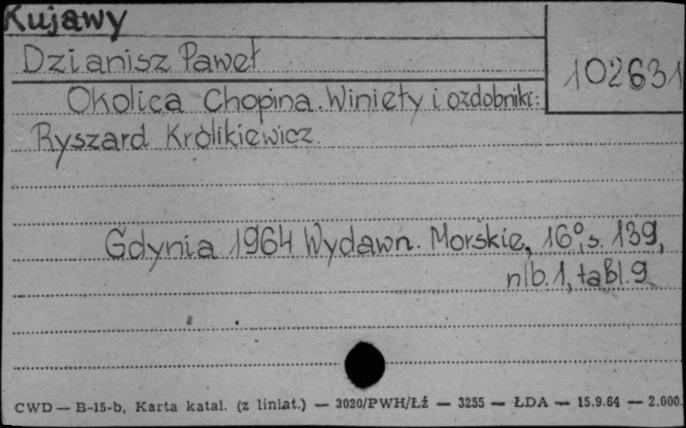 Kujawy
Dzianisz Paweł
102631
Okolica Chopina. Winiety i ozdobniki:
Ryszard Królikiewicz.
Gdynia 1964 Wydawn. Morskie, 16°, s. 139,
nlb. 1, tabl. 9
CWD — B-15-b, Karta katal. (z liniat.) — 3020/PWH/Łź — 3255 — ŁDA — 15.9.64 — 2.000.